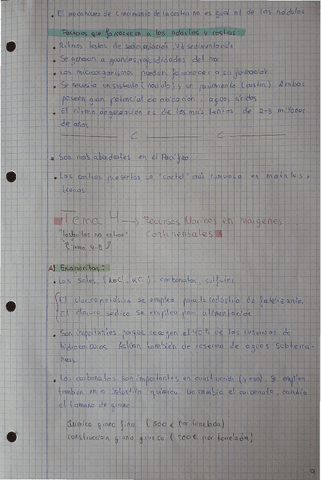 • El mecanismo de crecimiento de la costra no es igual al de los nódulos
Factores que favorecen a los nódulos y costras
• Ritmos lentos de sedimentación, Vb sedimentación
• Se generan a grandes profundidades del mar
• Los microorganismos pueden favorecer a su formación
• Se necesita un sustrato (nódulo), un pavimento (costra). Ambos
poseen gran potencial de oxidación, aguas ácidas
• El ritmo de es de los más lentos de 2-3 millones
de años
C C
• Son más abundantes en el Pacífico
• Las costras presentan un "cartel" más
Tema 4 → Recursos Marinos en márgenes
Continentales
(Tema 4-8)
A) Evaporitas:
• Las sales, (NaCl, KCl), carbonatos, sulfatos
cloruro potásico se emplea para la industria de fertilizantes
cloruro sódico se emplea para alimentación
• Son importantes porque recogen el 40% de las reservas de
hidrocarburos. Actúan también de reserva de aguas subterrá-
neas.
• Los carbonatos son importantes en construcción (yeso). Se emplea
también en la industria química. Un cambio el carbonato, cambia
el tamaño de grano.
Química grano fino (300 € la tonelada)
construcción grano grueso (100 € por tonelada)
9